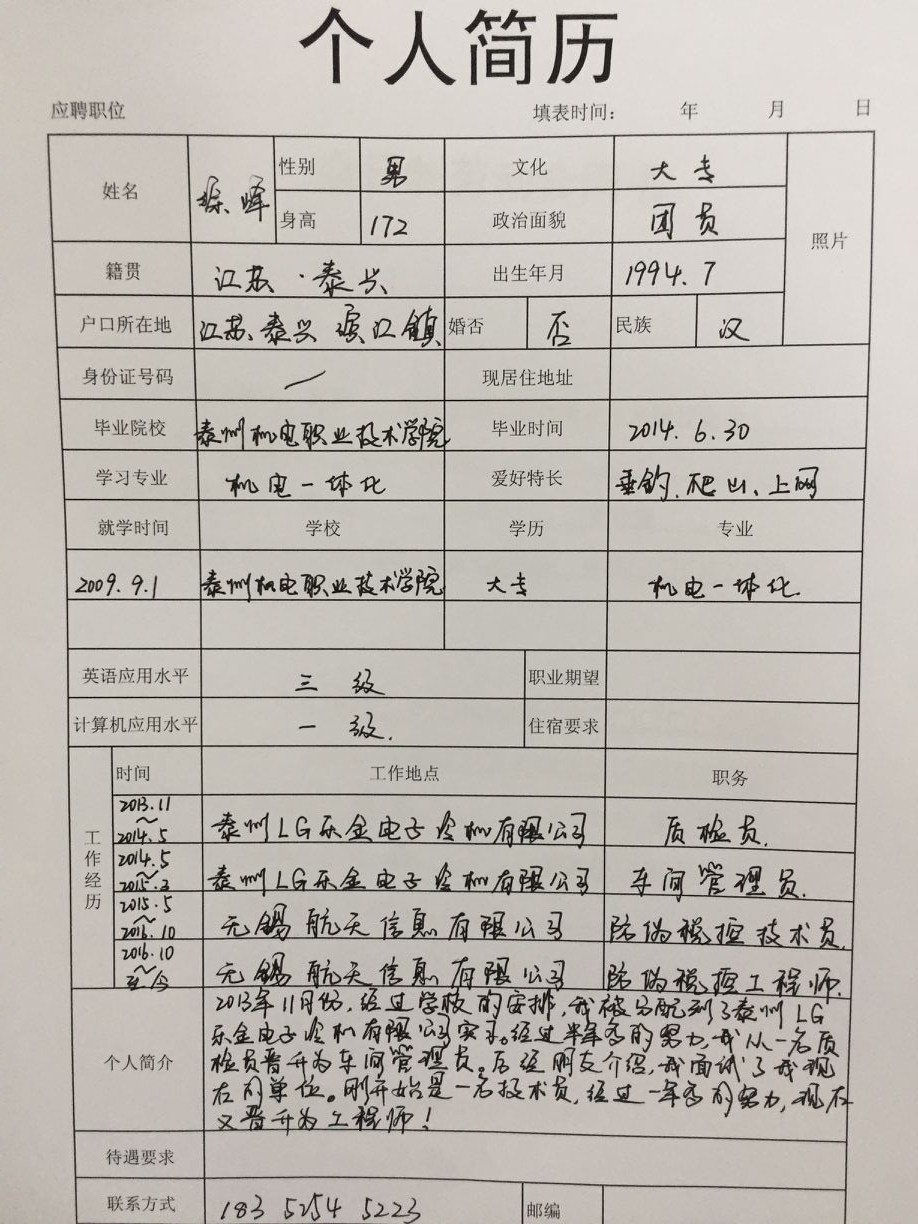 个人简历
应聘职位 填表时间： 年 月 日
姓名 峰 性别 男 文化 大专 照片
身高 172 政治面貌 团员
籍贯 江苏·泰兴 出生年月 1994.7
户口所在地 江苏泰兴滨江镇 婚否 否 民族 汉
身份证号码 / 现居住地址
毕业院校 泰州机电职业技术学院 毕业时间 2014.6.30
学习专业 机电一体化 爱好特长 垂钓、爬山、上网
就学时间 学校 学历 专业
2009.9.1 泰州机电职业技术学院 大专 机电一体化.
英语应用水平 三级 职业期望
计算机应用水平 一级. 住宿要求
工作经历 时间 工作地点 职务
2013.11~2014.5 泰州LG乐金电子冷机有限公司 质检员.
2014.5~2015.3 泰州LG乐金电子冷机有限公司 车间管理员.
2015.5~2016.10 无锡航天信息有限公司 防伪税控技术员.
2016.10~至今 无锡航天信息有限公司 防伪税控工程师.
个人简介 2013年11月份,经过学校的安排,我被分配到了泰州LG
乐金电子冷机有限公司实习。经过半年多的努力,我从一名质
检员晋升为车间管理员。后经朋友介绍,我面试了我现
在的单位。刚开始是一名技术员,经过一年多的努力,现在
又晋升为工程师!
待遇要求
联系方式 183 5254 5223 邮编